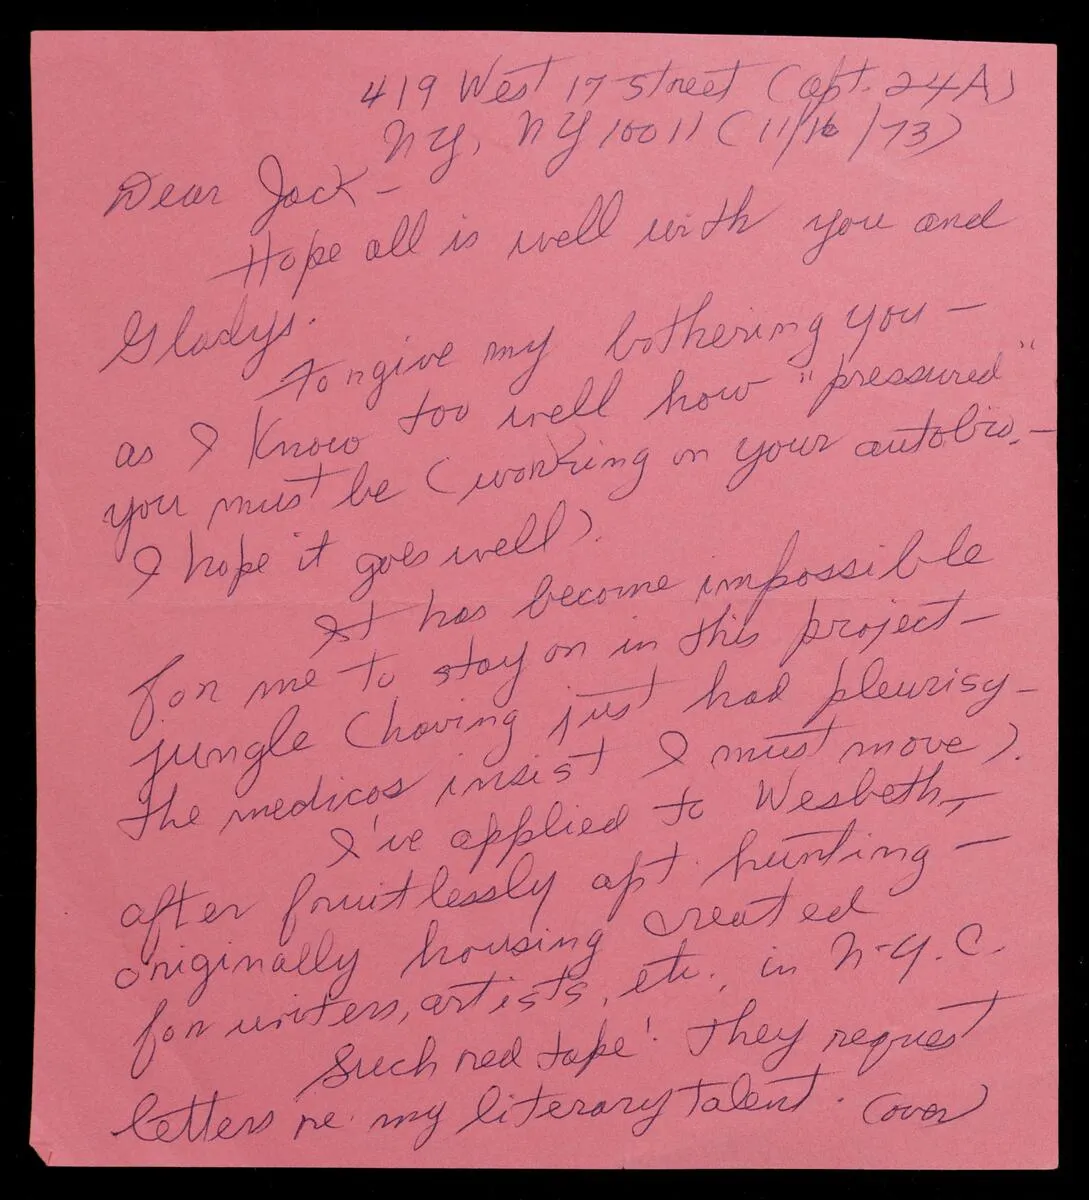 419 West 17 Street (apt. 24A)
NY, NY 10011 (11/16/73)
Dear Jack -
Hope all is well with you and
Gladys.
Forgive my bothering you -
as I know too well how "pressured"
you must be (working on your autobio. -
I hope it goes well).
It has become impossible
for me to stay on in this project -
jungle (having just had pleurisy -
the medicos insist I must move).
I've applied to Wesbeth, -
after fruitlessly apt. hunting -
originally housing created
for writers, artists, etc., in N.Y.C.
Such red tape! They request
letters re. my literary talent. (over)